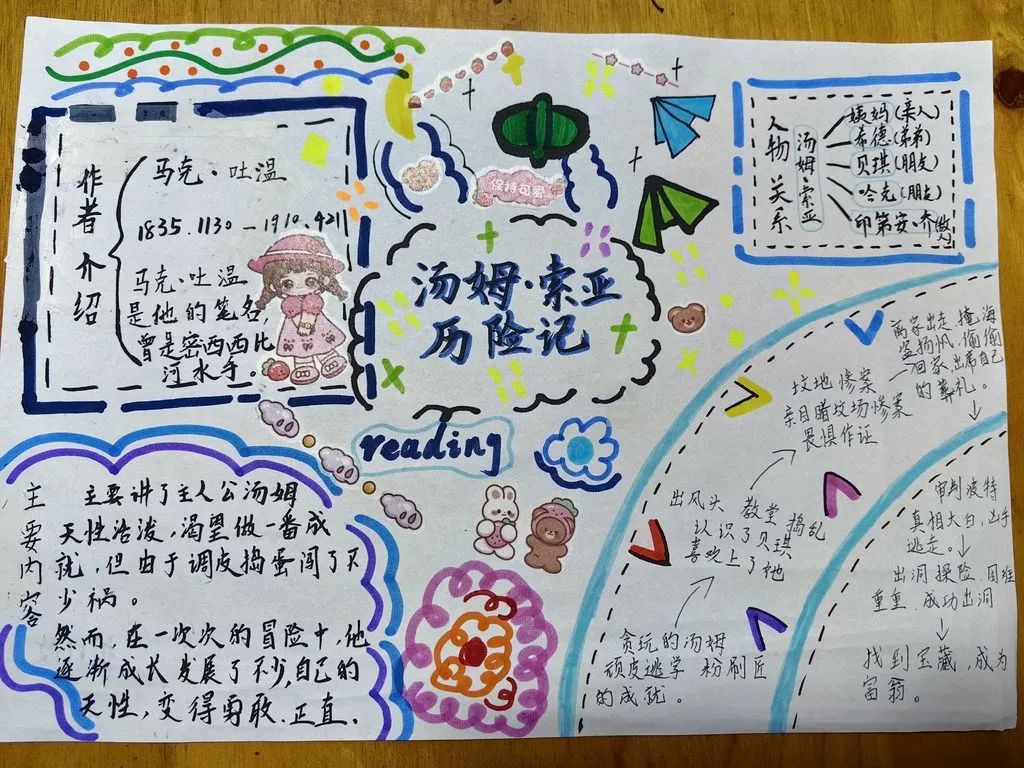 汤姆·索亚
历险记
保持可爱
reading
作者介绍
马克·吐温
1835.1130—1910.421
马克·吐温
是他的笔名,
曾是密西西比
河水手。
人物关系
汤姆·索亚
姨妈(亲人)
希德(弟弟)
贝琪(朋友)
哈克(朋友)
印第安·乔
主要内容
主要讲了主人公汤姆
天性活泼,渴望做一番成
就,但由于调皮捣蛋闯了不
少祸。
然而,在一次次的冒险中,他
逐渐成长发展了不少,自己的
天性,变得勇敢.正直.
贪玩的汤姆
顽皮逃学 粉刷匠
的成就。
出风头 教堂 捣乱
认识了贝琪
喜欢上了她
坟地惨案
亲目睹坟场惨案
畏惧作证
离家出走 掩海
盗扬帆,偷偷
回家,出席自己
的葬礼。
审判波特
真相大白,凶手
逃走。
出洞探险.困难
重重.成功出洞
找到宝藏,成为
富翁。